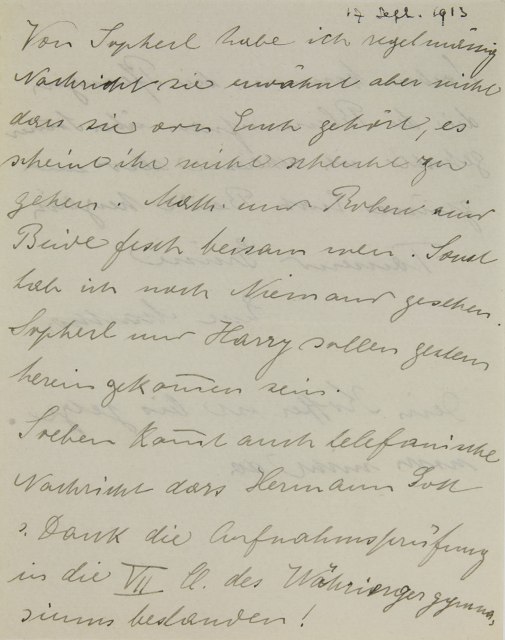 17 Sept. 1913
Von Sopherl habe ich regelmässig
Nachricht sie erwähnt aber nicht
dass sie von Euch gehört, es
scheint ihr nicht schlecht zu
gehen. Math. und Robert sind
Beide fesch beisammen. Sonst
hab ich noch Niemand gesehen.
Sopherl und Harry sollen gestern
hereingekom̅en sein.
Soeben kom̅t auch telefonische
Nachricht dass Hermann Gott
s. Dank die Aufnahmsprüfung
in die VII Cl. des Währingergymna,
siums bestanden!